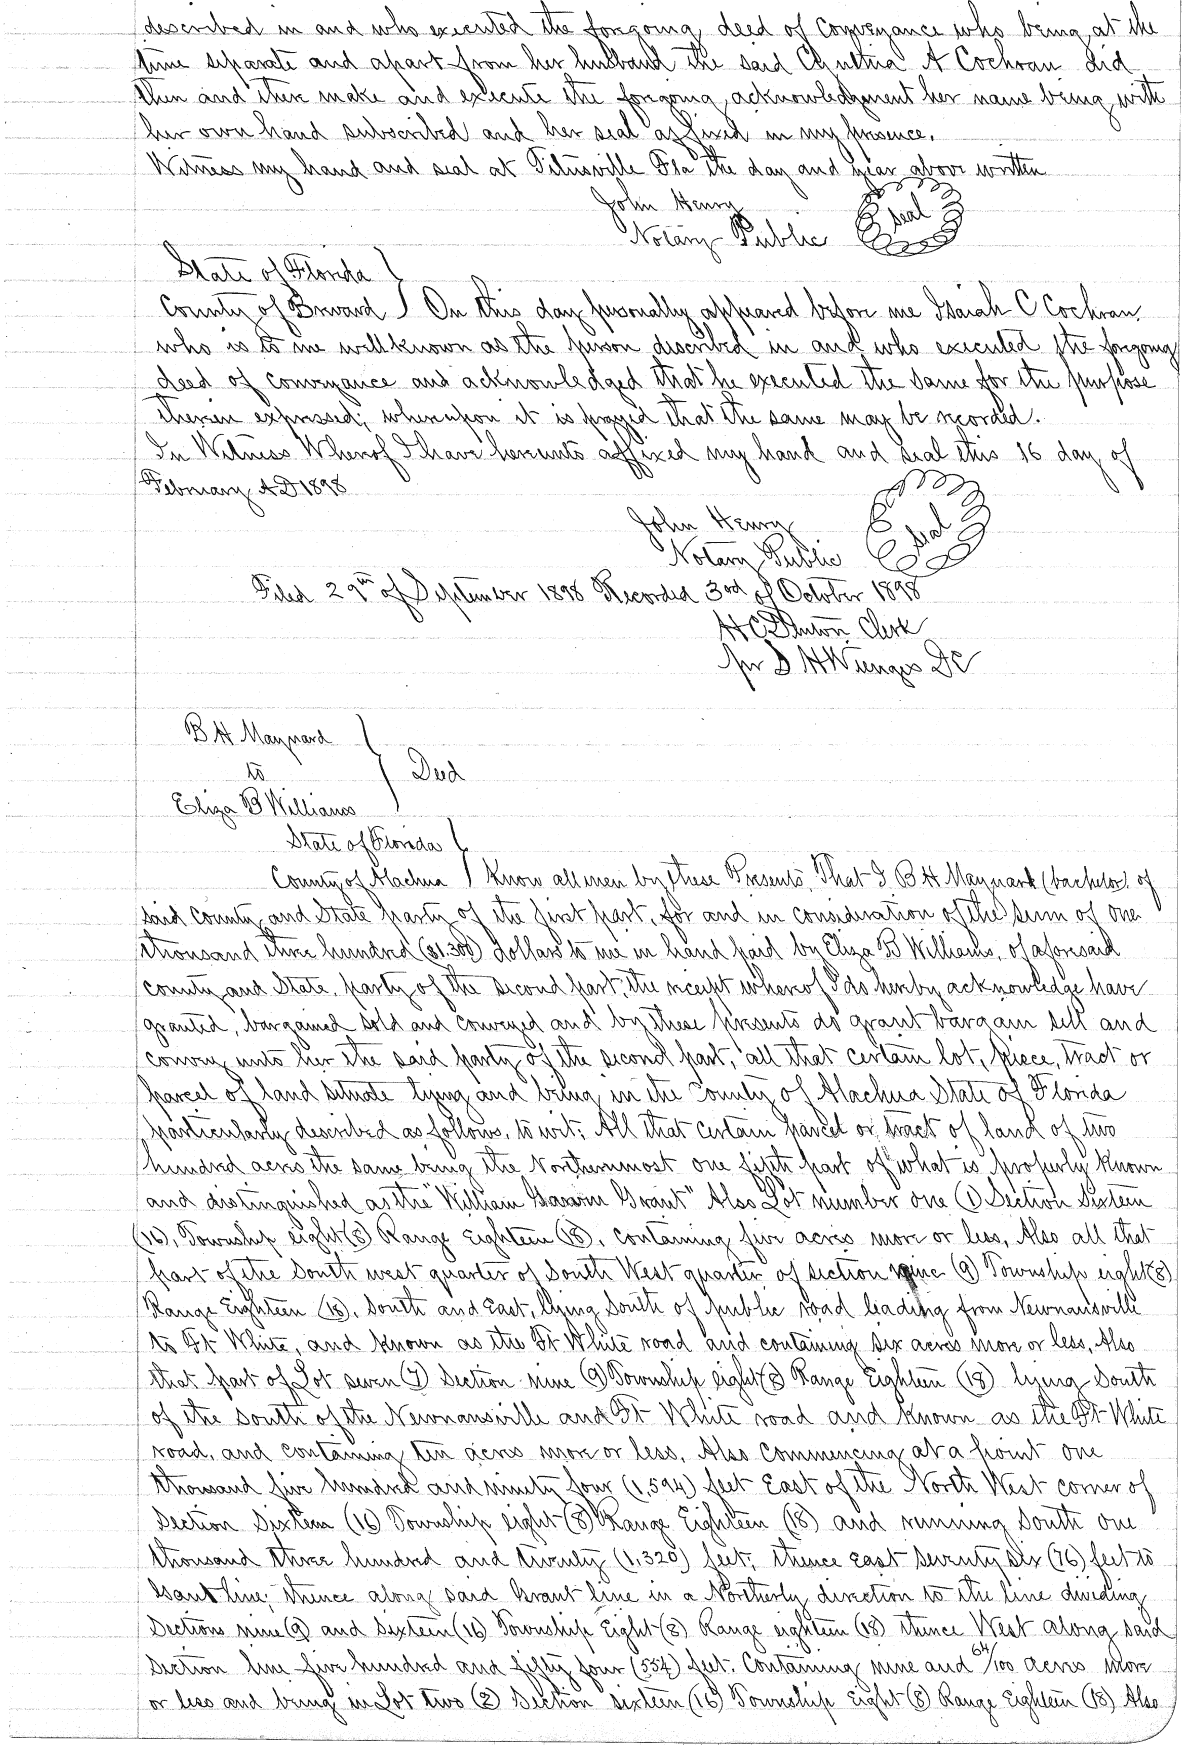 described in and who executed the forgoing deed of Conveyance who being at the
time separate and apart from her husband the said Cynthia A Cochran did
then and there make and execute the forgoing acknowledgment her name being with
her own hand subscribed and her seal affixed in my presence.
Witness my hand and seal at Titusville Fla the day and year above written
John Henry
Notary Public
Seal
State of Florida }
County of Brevard } On this day personally appeared before me Isaiah C Cochran
who is to me well known as the person described in and who executed the forgoing
deed of conveyance and acknowledged that he executed the same for the purpose
therein expressed; whereupon it is prayed that the same may be recorded.
In Witness Whereof I have hereunto affixed my hand and seal this 16 day of
February A.D 1898
John Henry
Notary Public
Seal
Filed 29th of September 1898 Recorded 3rd of October 1898
H C Denton Clerk
pr S H Wienges DC
B H Maynard }
to } Deed
Eliza B Williams
State of Florida }
County of Alachua } Know all men by these Presents, That I B H Maynard (bachelor) of
said County and State party of the first part, for and in consideration of the sum of one
thousand three hundred ($1.300) dollars to me in hand paid by Eliza B Williams, of aforesaid
county and State, party of the second part, the receipt whereof I do hereby acknowledge have
granted, bargained sold and conveyed and by these presents do grant bargain sell and
convey unto her the said party of the second part, all that certain lot, piece, tract or
parcel of land situate lying and being in the County of Alachua State of Florida
particularly described as follows, to wit; All that certain parcel or tract of land of two
hundred acres the same being the Northernmost one fifth part of what is properly known
and distinguished as the "William Grant" Also Lot number one (1) Section Sixteen
(16), Township eight (8) Range Eighteen (18), containing five acres more or less, Also all that
part of the South west quarter of South West quarter of section nine (9) Township eight (8)
Range Eighteen (18), South and East, lying South of public road leading from Newnansville
to Ft White, and known as the Ft White road and containing six acres more or less, Also
that part of Lot seven (7) Section nine (9) Township eight (8) Range Eighteen (18) lying South
of the South of the Newnansville and Ft White road and known as the Ft White
road, and containing ten acres more or less, Also Commencing at a point one
thousand five hundred and ninety four (1,594) feet East of the North West corner of
Section Sixteen (16) Township eight (8) Range Eighteen (18) and running South one
thousand three hundred and twenty (1,320) feet; thence East seventy six (76) feet to
Grant line, thence along said Grant line in a Northerly direction to the line dividing
Sections nine (9) and sixteen (16) Township Eight (8) Range eighteen (18) thence West along said
Section line five hundred and fifty four (554) feet. Containing nine and 64/100 acres more
or less and being in Lot two (2) Section sixteen (16) Township Eight (8) Range Eighteen (18) Also